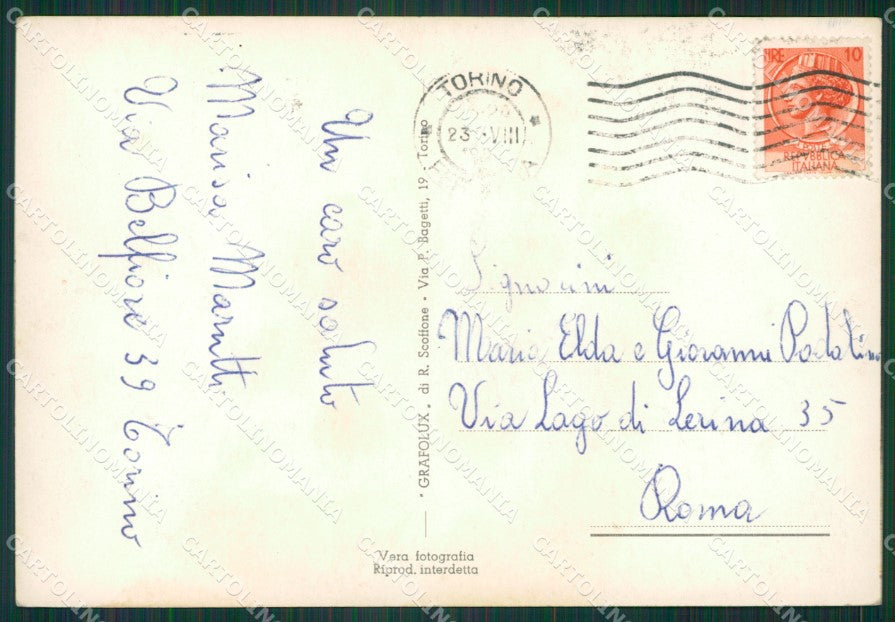 Un caro saluto
Marisa Marutti
Via Belfiore 39 Torino
"GRAFOLUX" di R. Scoffone - Via P. Bagetti, 19 - Torino
Vera fotografia
Riprod. interdetta
TORINO
23 VIII
LIRE 10
REPVBBLICA
ITALIANA
Signorini
Maria Elda e Giovanni Padalino
Via Lago di Lerina 35
Roma
CARTOLINOMANIA